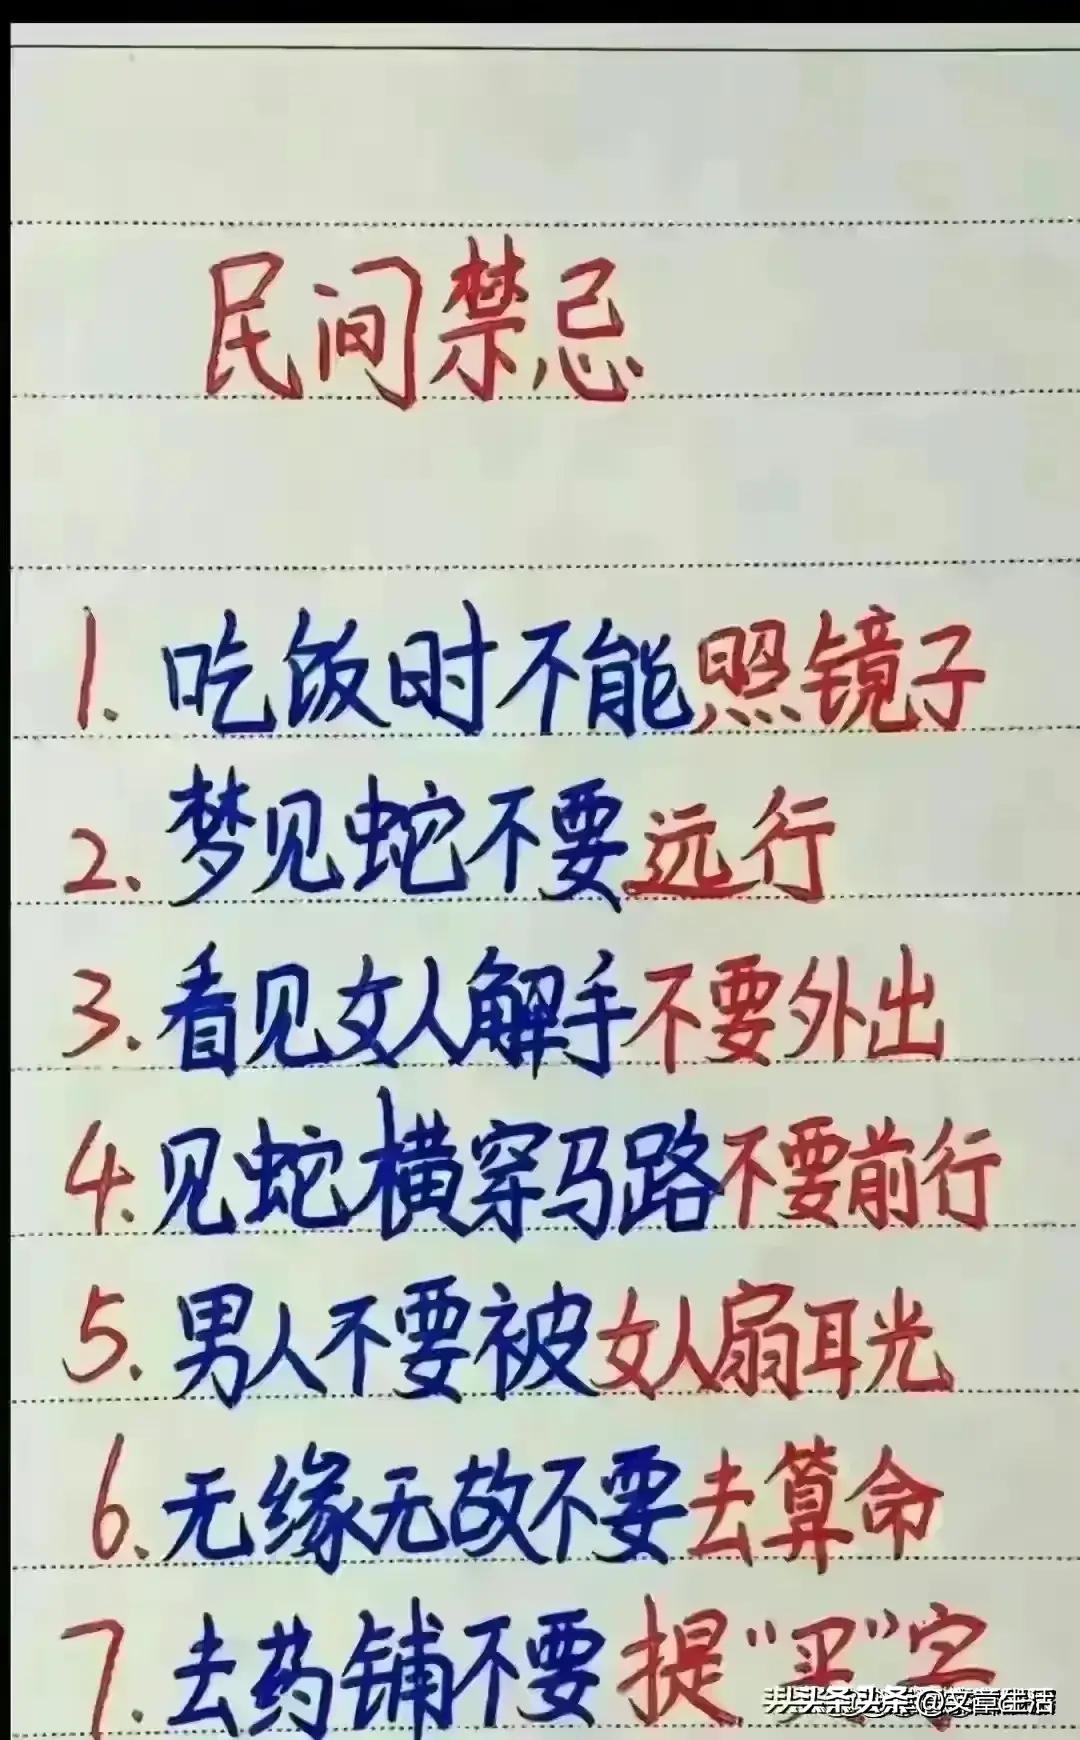 民间禁忌
1. 吃饭时不能照镜子
2. 梦见蛇不要远行
3. 看见女人解手不要外出
4. 见蛇横穿马路不要前行
5. 男人不要被女人扇耳光
6. 无缘无故不要去算命
7. 去药铺不要提“买”字
头条 @文章生活